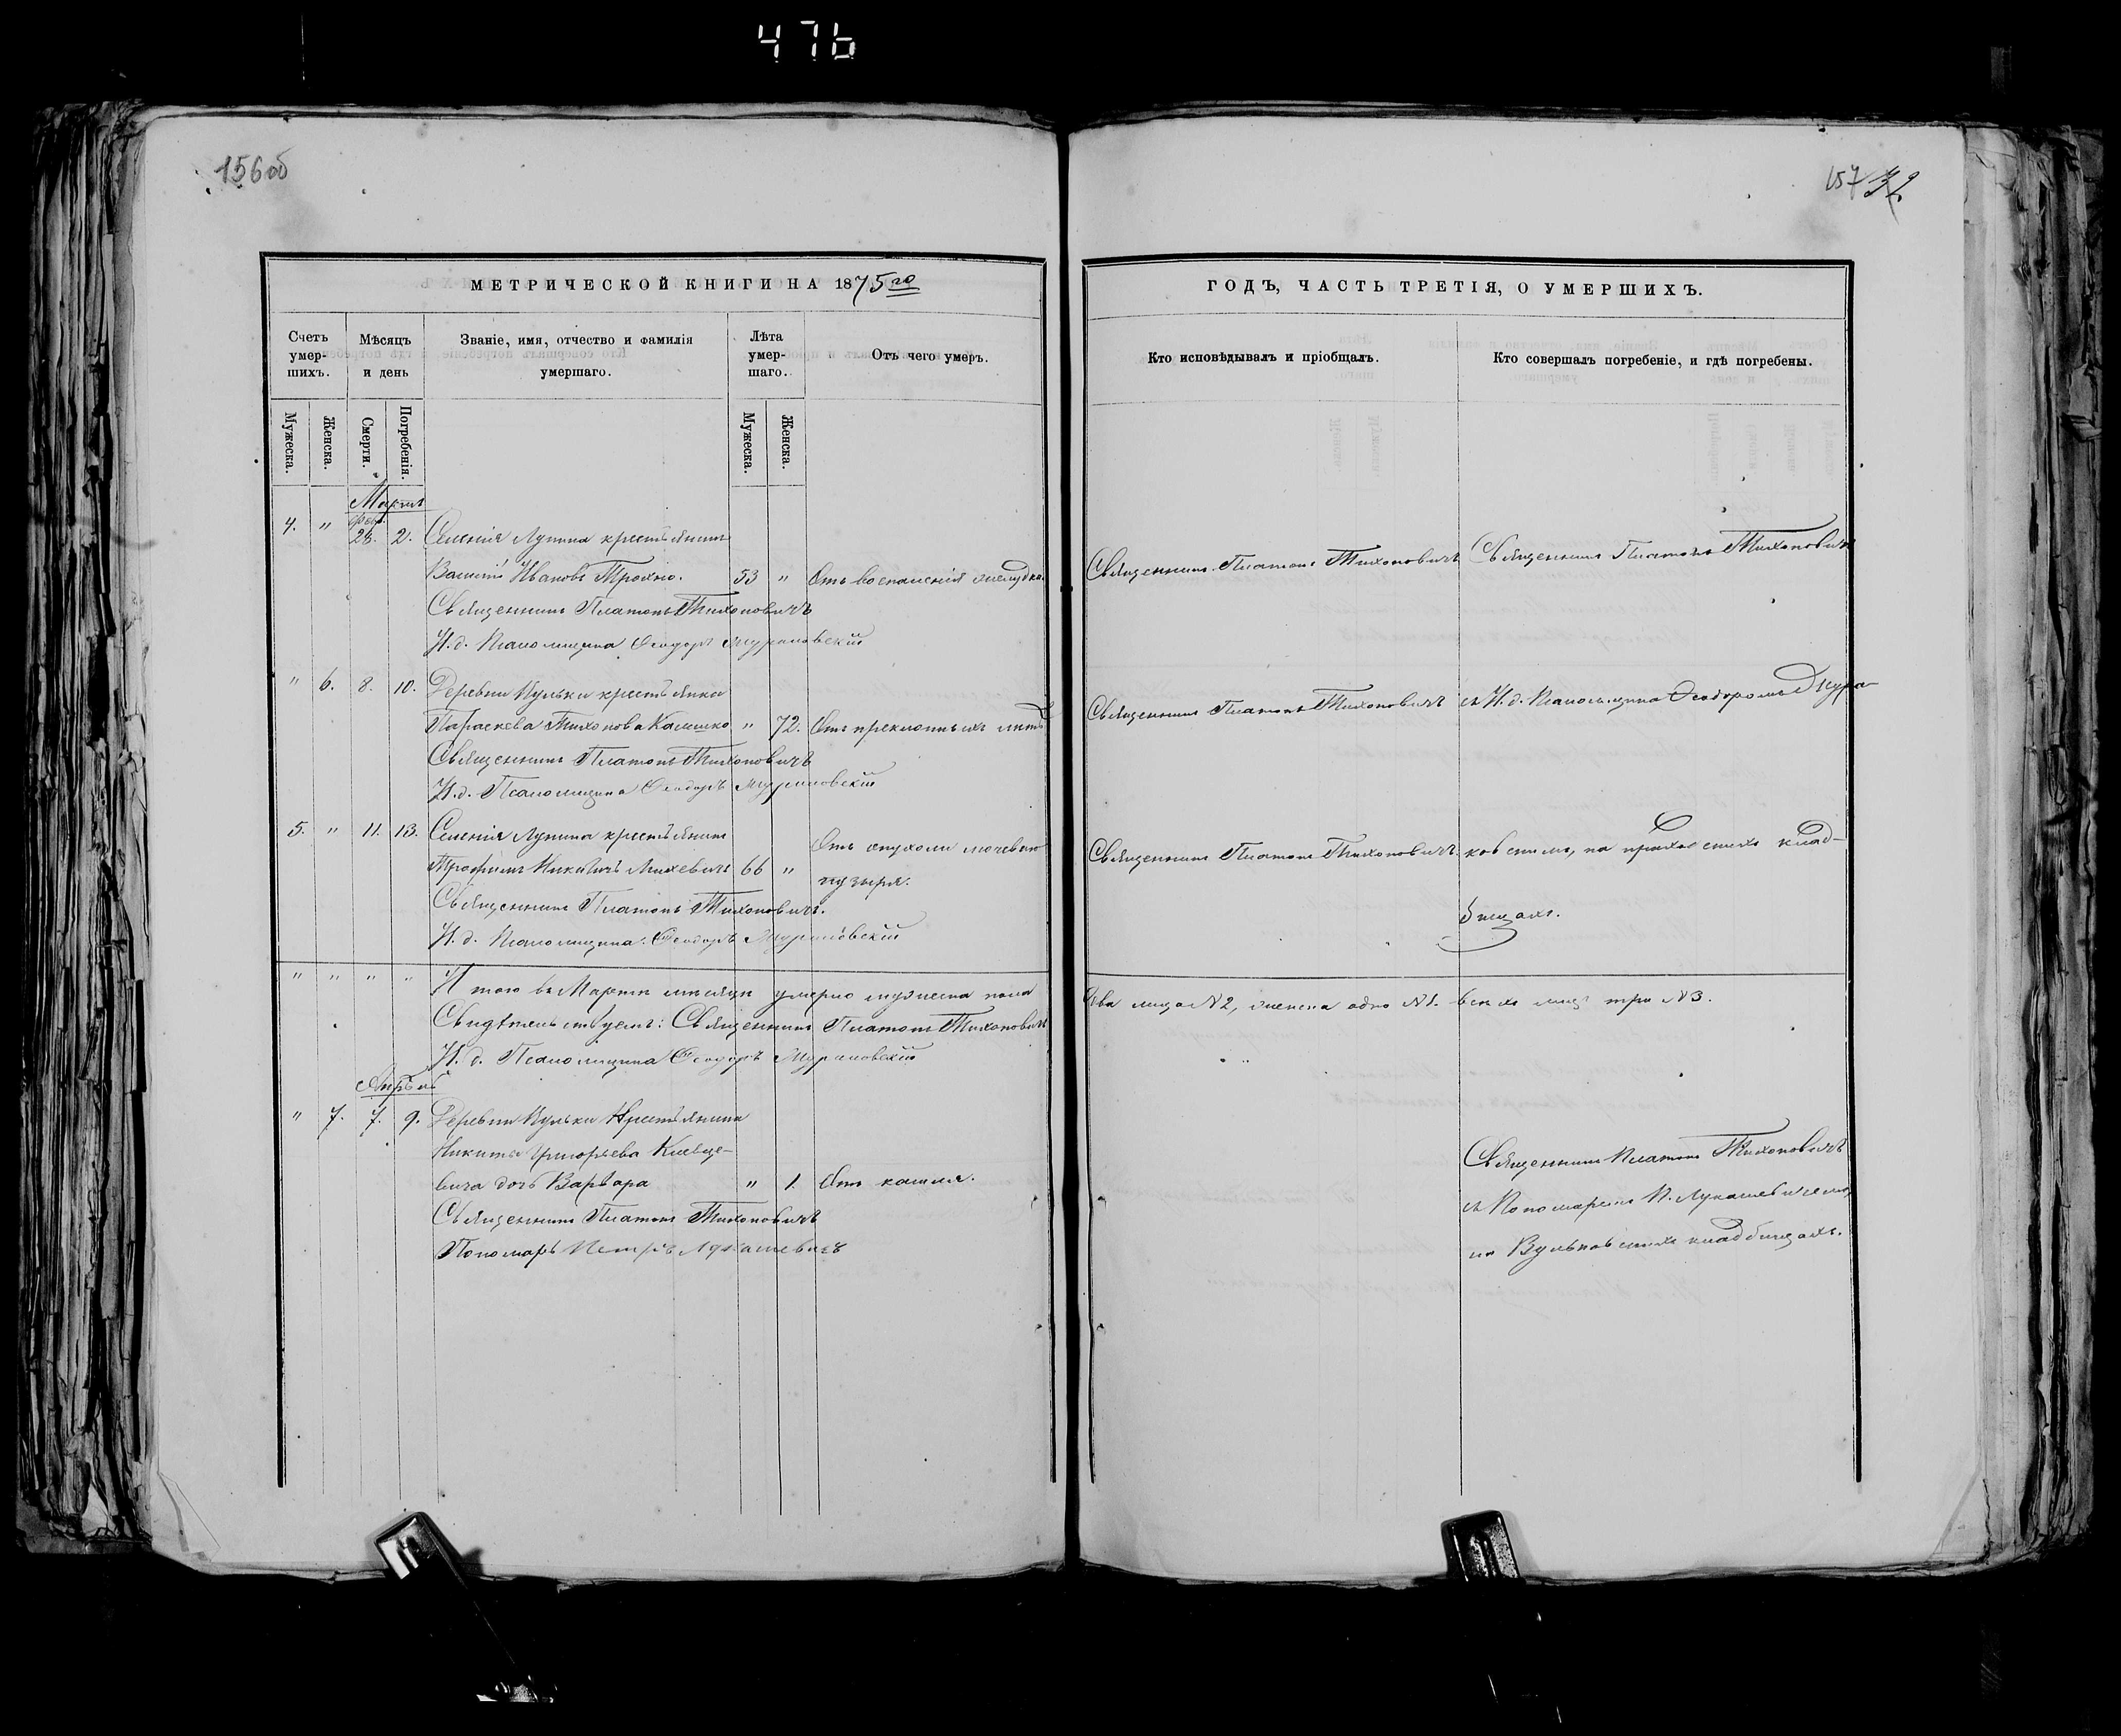 476
156об
157 32
МЕТРИЧЕСКОЙ КНИГИ НА 1875го
ГОДЪ, ЧАСТЬ ТРЕТІЯ, О УМЕРШИХЪ.
Счетъ умер-шихъ.
Мѣсяцъ и день
Званіе, имя, отчество и фамилія умершаго.
Лѣта умер-шаго.
Отъ чего умеръ.
Кто исповѣдывалъ и пріобщалъ.
Кто совершалъ погребеніе, и гдѣ погребены.
Мужеска.
Женска.
Смерти.
Погребенія.
Мужеска.
Женска.
Мартъ
февр.
4. " 28. 2. Селенія Лупина крестьянинъ
Василій Ивановъ Трохно. 53 " Отъ воспаленія желудка.
Священникъ Платонъ Тихоновичъ
И.д. Псаломщика Ѳеодоръ Мурановскій
Священникъ Платонъ Тихоновичъ
Священникъ Платонъ Тихоновичъ
" 6. 8. 10. Деревни Вульки крестьянка
Параскева Тихонова Калишко " 72. Отъ преклонныхъ лѣтъ
Священникъ Платонъ Тихоновичъ
И.д. Псаломщика Ѳеодоръ Мурановскій
Священникъ Платонъ Тихоновичъ
съ И.д. Псаломщика Ѳеодоромъ Мура-
5. " 11. 13. Селенія Лупина крестьянинъ
Трофимъ Никитичъ Михевичъ 66 " Отъ опухоли мочеваго
пузыря.
Священникъ Платонъ Тихоновичъ.
И.д. Псаломщика Ѳеодоръ Мурановскій
Священникъ Платонъ Тихоновичъ.
ковскимъ, на приходскихъ клад-
бищахъ.
" " " " И того въ Мартѣ мѣсяцѣ умерло мужеска пола
два лица №2, женска одно №1. всѣхъ лицъ три №3.
Свидѣтельствуемъ: Священникъ Платонъ Тихоновичъ
И.д. Псаломщика Ѳеодоръ Мурановскій
Апрѣль
" 7. 7. 9. Деревни Вульки Крестьянина
Никиты Григорьева
вича дочь Варвара " 1. Отъ кашля.
Священникъ Платонъ Тихоновичъ
Пономарь Петръ Лукашевичъ
Священникъ Платонъ Тихоновичъ
съ Пономаремъ П. Лукашевичемъ,
на Вульковскихъ кладбищахъ.